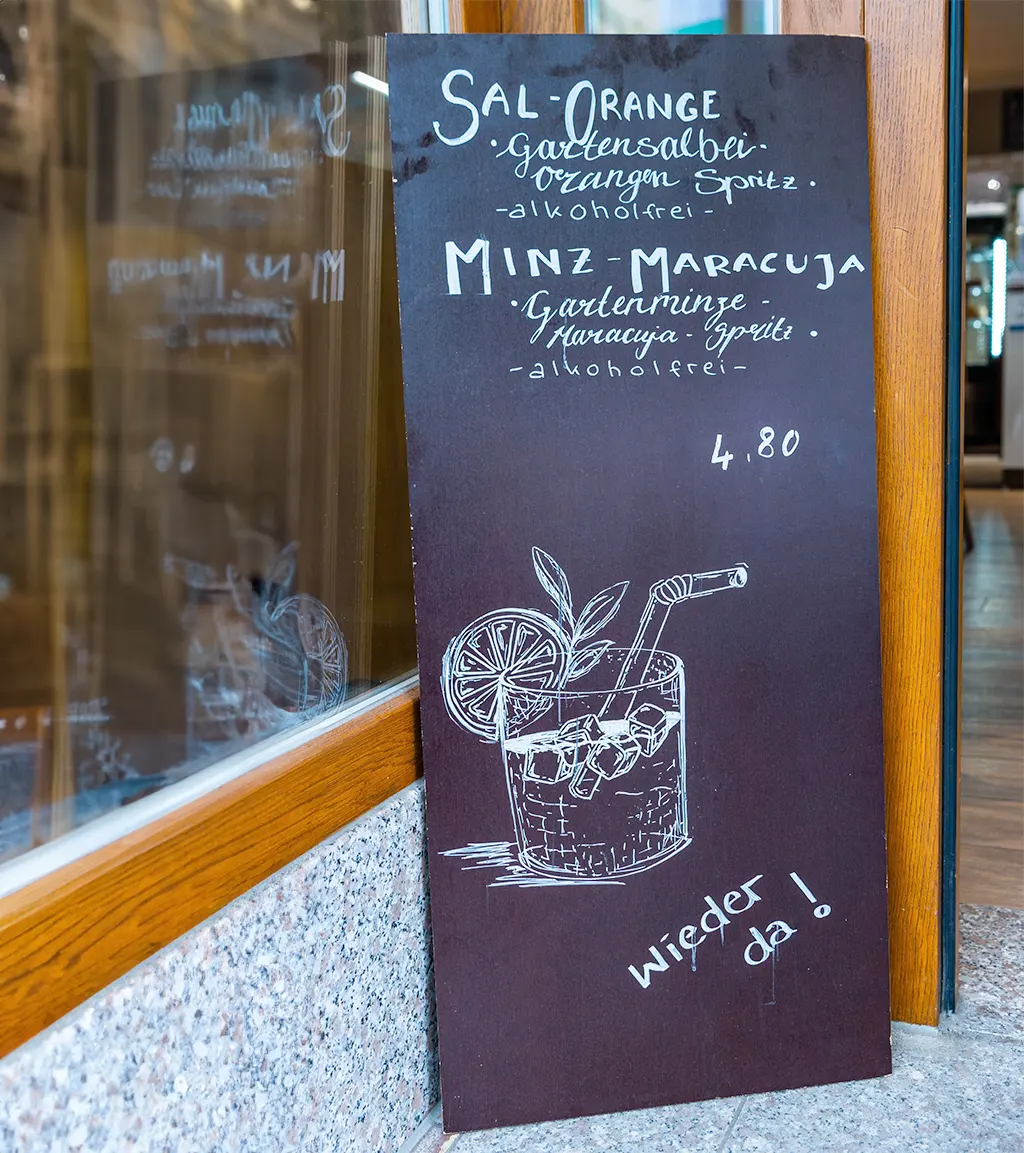 SAL-ORANGE
·Gartensalbei-
orangen Spritz·
-alkoholfrei-
MINZ-MARACUJA
·Gartenminze-
Maracuja-Spritz·
-alkoholfrei-
4.80
wieder
da!